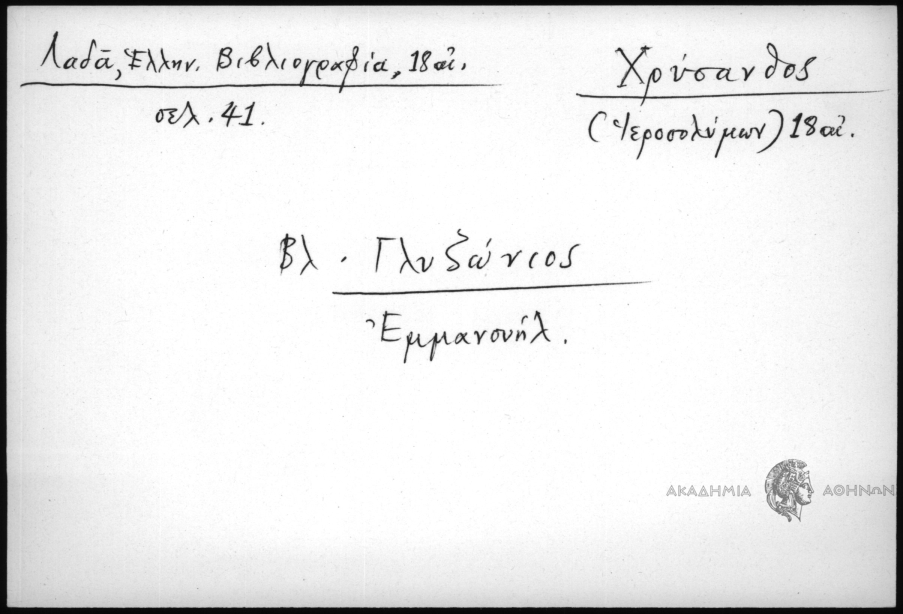 Λαδᾶ, Ἑλλην. Βιβλιογραφία, 18 αἰ.
σελ. 41.
Χρύσανθος
(Ἱεροσολύμων) 18 αἰ.
Βλ. Γλυζώνιος
Ἐμμανουήλ.
ΑΚΑΔΗΜΙΑ ΑΘΗΝΩΝ